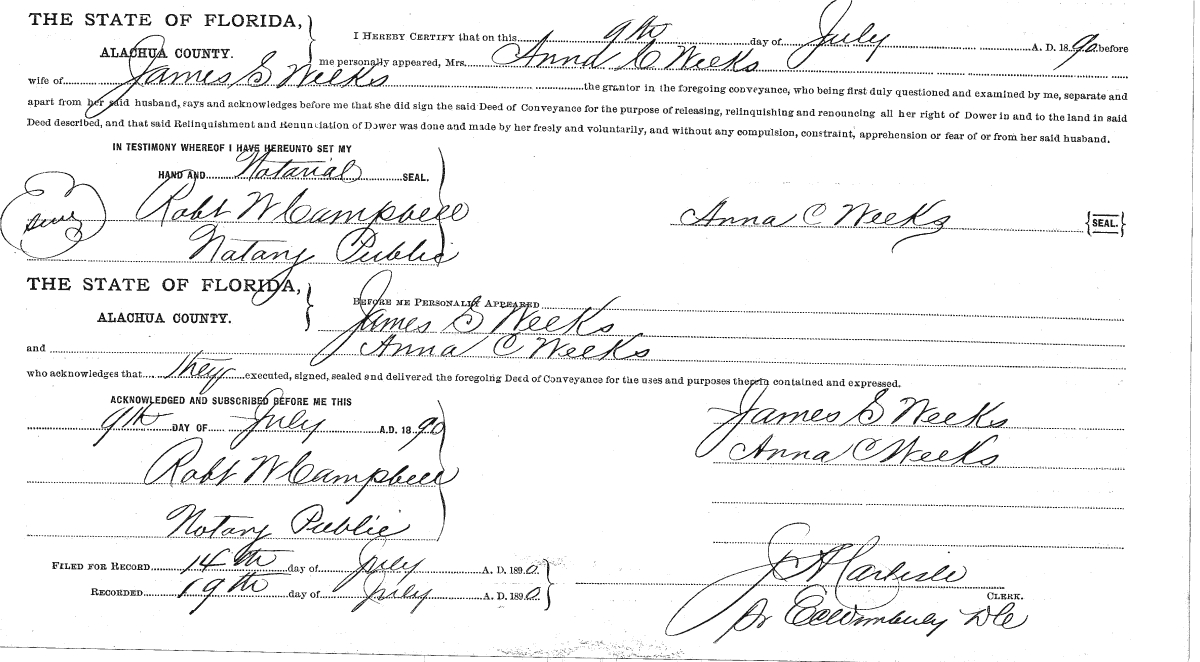 THE STATE OF FLORIDA,
ALACHUA COUNTY.
I HEREBY CERTIFY that on this 9th day of July A. D. 1890 before
me personally appeared, Mrs. Anna C Weeks
wife of James S Weeks the grantor in the foregoing conveyance, who being first duly questioned and examined by me, separate and
apart from her said husband, says and acknowledges before me that she did sign the said Deed of Conveyance for the purpose of releasing, relinquishing and renouncing all her right of Dower in and to the land in said
Deed described, and that said Relinquishment and Renunciation of Dower was done and made by her freely and voluntarily, and without any compulsion, constraint, apprehension or fear of or from her said husband.
IN TESTIMONY WHEREOF I HAVE HEREUNTO SET MY
HAND AND Notarial SEAL.
Robt W Campbell
Notary Public
Seal
Anna C Weeks {SEAL.}
THE STATE OF FLORIDA,
ALACHUA COUNTY.
BEFORE ME PERSONALLY APPEARED
James S Weeks
and Anna C Weeks
who acknowledges that they executed, signed, sealed and delivered the foregoing Deed of Conveyance for the uses and purposes therein contained and expressed.
ACKNOWLEDGED AND SUBSCRIBED BEFORE ME THIS
9th DAY OF July A.D. 1890
Robt W Campbell
Notary Public
James S Weeks
Anna C Weeks
FILED FOR RECORD 14th day of July A. D. 1890.
RECORDED 19th day of July A. D. 1890.
J A Carlisle
CLERK.
DC